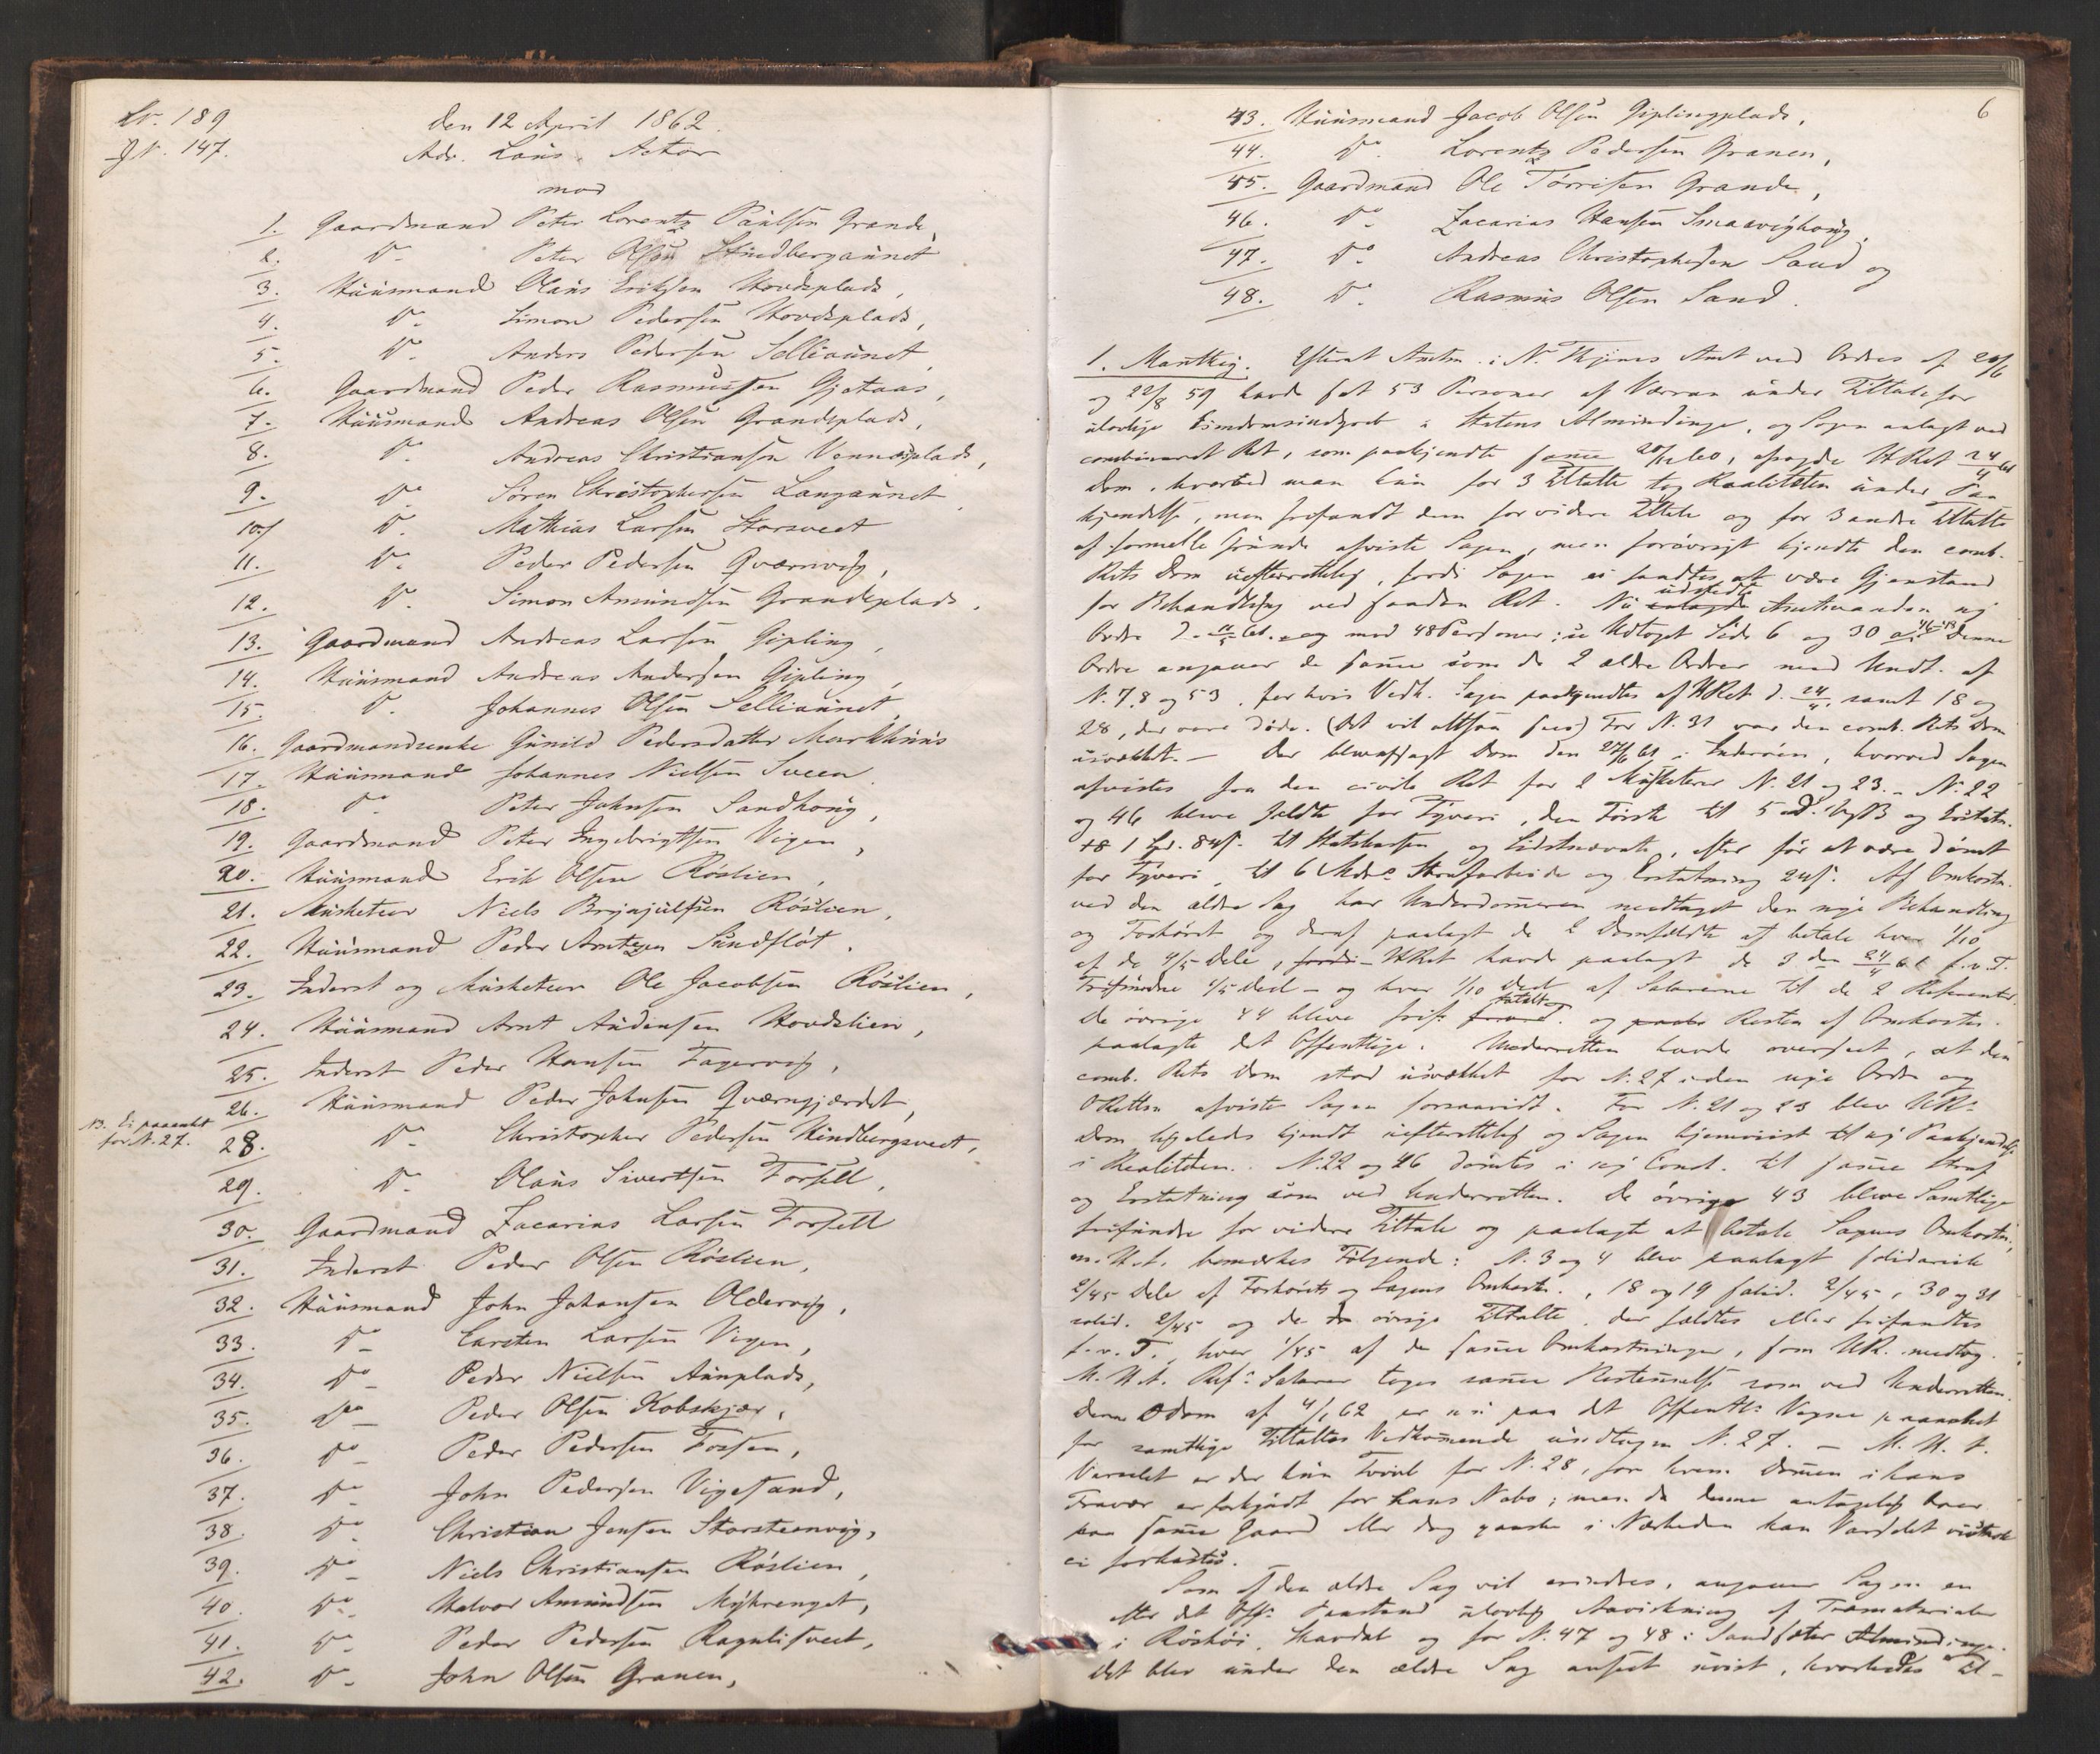 Lr. 189
J N. 147.
den 12 April 1862.
Adv. Laus. Actor
mod
1. Gaardmand Peter Lorentz Paulsen Grande,
2. Do Peter Olsen Stindbergaunet
3. Huusmand Olaus Eriksen Hovdsplads,
4. Do Simon Pedersen Hovdsplads,
5. Do Anders Pedersen Selliaunet
6. Gaardmand Peder Rasmussen Gjetaas,
7. Huusmand Andreas Olsen Grandeplads,
8. Do Andreas Christiansen Vennesplads,
9. Do Søren Christophersen Langaunet,
10. Do Mathias Larsen Storsveet
11. Do Peder Pedersen Qvernvig,
12. Do Simon Amundsen Grandeplads,
13. Gaardmand Andreas Larsen Gipling,
14. Huusmand Andreas Andersen Gipling,
15. Do Johannes Olsen Selliaunet
16. Gaardmandsenke Gunild Pedersdatter Markhuus
17. Huusmand Johannes Nielsen Sveen
18. Do Peter Johnsen Sandhoug,
19. Gaardmand Peter Ingebrigtsen Vigen,
20. Huusmand Erik Olsen Röslien,
21. Musketeer Niels Brynjulfsen Röslien,
22. Huusmand Peder Arntzen Sundslöt.
23. Inderst og Musketeer Ole Jacobsen Röslien,
24. Huusmand Arnt Audensen Hovdslien,
25. Inderst Peder Hansen Fagervig,
26. Huusmand Peder Johnsen Qværngjærdet,
NB. Ei paaanket
for N. 27.
28. Do Christopher Pedersen Hindbergsveet,
29. Do Olaus Sivertsen Forsell,
30. Gaardmand Zacarias Larsen Forsell
31. Inderst Peder Olsen Röslien,
32. Huusmand John Johansen Oldervig,
33. Do Carsten Larsen Vigen,
34. Do Peder Nielsen Aunplads,
35. Do Peder Olsen Kobskjær,
36. Do Peder Pedersen Fossen,
37. Do John Pedersen Vigesand,
38. Do Christian Jensen Storsteenvig,
39. Do Niels Christiansen Röslien,
40. Do Halvor Amundsen Myhrenget,
41. Do Peder Pedersen Ragnlisveet,
42. Do John Olsen Granen,
6
43. Huusmand Jacob Olsen Giplingplads,
44. Do Lorentz Pedersen Granen,
45. Gaardmand Ole Tørrisen Grande,
46. Do Zacarias Hansen Smaavighoug,
47. Do Andreas Christophersen Sand og
48. Do Rasmus Olsen Sand.
1. Mærkelig. Efterat Amtm. i N. Thjems Amt ved Ordres af 20/6
og 22/8 59 havde sat 53 Personer af Værran under Tiltale for
ulovlige Eiendomsindgreb i Statens Almindinge, og Sagen anlagt ved
combineret Ret, som paakjendte samme 20/12 60, afsagde HRet 24/4 61
Dom, hvorved man kun for 3 Tiltalte tog Realiteten under Paa
kjendelse, men frifandt dem for videre Tiltale og for 3 andre Tiltalte
af formelle Grunde afviste Sagen, men forøvrigt kjendte den comb.
Rets Dom uefterrettelig, fordi Sagen ei fandtes at være Gjenstand
for Behandling ved saadan Ret. Nu udstedte Amtmanden ny
Ordre d. 11/5 61 mod 48 Personer; se Udtoget Side 6 og 30 denne
Ordre angaaer de samme som de 2 ældre Ordrer med Undt. af
N. 7, 8 og 53, for hvis Vedk. Sagen paakjendtes af HRet d. 24/4 samt 18 og
28, der vare døde. For N. 31 var den comb. Rets Dom
usvækket. — Der blev afsagt Dom den 27/6 61 i Inderøen, hvorved Sagen
afvistes fra den civile Ret for 2 Musketerer N. 21 og 23. — N. 22
og 46 bleve fældte for Tyveri, den Første til 5 og Erstatn.
1 Spd. 84 s. til Statskassen og Sidstnævnte, efter før at være dømt
for Tyveri, til 6 Mdrs Strafarbeide og Erstatning 24 s. Af Omkostn.
ved den ældre Sag har Underdommeren medtaget den nye Behandling
og Forhøret og deraf paalagt de 2 Domfældte at betale hver 1/10
af de 4/5 Dele, HRet havde paalagt de 3 den 24/4 61 f. v. T.
Frifundne 1/5 Deel — og hver 1/10 Deel af Salærerne til de 2 Referenter.
De øvrige 44 bleve frif. og Resten af Omkostn.
paalagte det Offentlige. Underretten havde overseet, at den
comb. Rets Dom stod usvækket for N. 27 i den nye Ordre og
ORetten afviste Sagen forsaavidt. For N. 21 og 23 blev URs
Dom ligeledes kjendt uefterrettelig og Sagen hjemviist til ny Paakjendelse
i Realiteten. N. 22 og 46 dømtes i ny Const. til samme Straf
og Erstatning som ved Underretten. De øvrige 43 bleve samtlige
frifundne for videre Tiltale og paalagte at betale Sagens Omkostn.,
m. H. t. bemærkes Følgende: N. 3 og 4 blev paalagt solidarisk
2/45 Dele af Forhørets og Sagens Omkostn., 18 og 19 solid. 2/45, 30 og 31
solid. 2/45 og de øvrige Tiltalte, der fældtes eller frifandtes
f. v. T., hver 1/45 af de samme Omkostninger, som UR. medtog.
M. H. t. Refs. Salærer toges samme Bestemmelse som ved Underretten.
Denne Odom af 4/1 62 er nu paa det Offentls Vegne paaanket
for samtlige Tiltaltes Vedkommende undtagen N. 27. — M. H. t.
Varselet er der kun Tvivl for N. 28, for hvem Dommen i hans
Fravær er forkyndt for hans Nabo; men da denne antagelig boer
paa samme Gaard eller dog ganske i Nærheden kan Varslet vistnok
ei forkastes.
Som af den ældre Sag vil erindres, angaaer Sagen en
efter det Offs Paastand ulovlig Anvisning af Træmaterialer
i Röshöi, Skavdal og for N. 47 og 48 i Sandsæter Alminding.
Det blev under den ældre Sag anseet uvist, hvorledes det